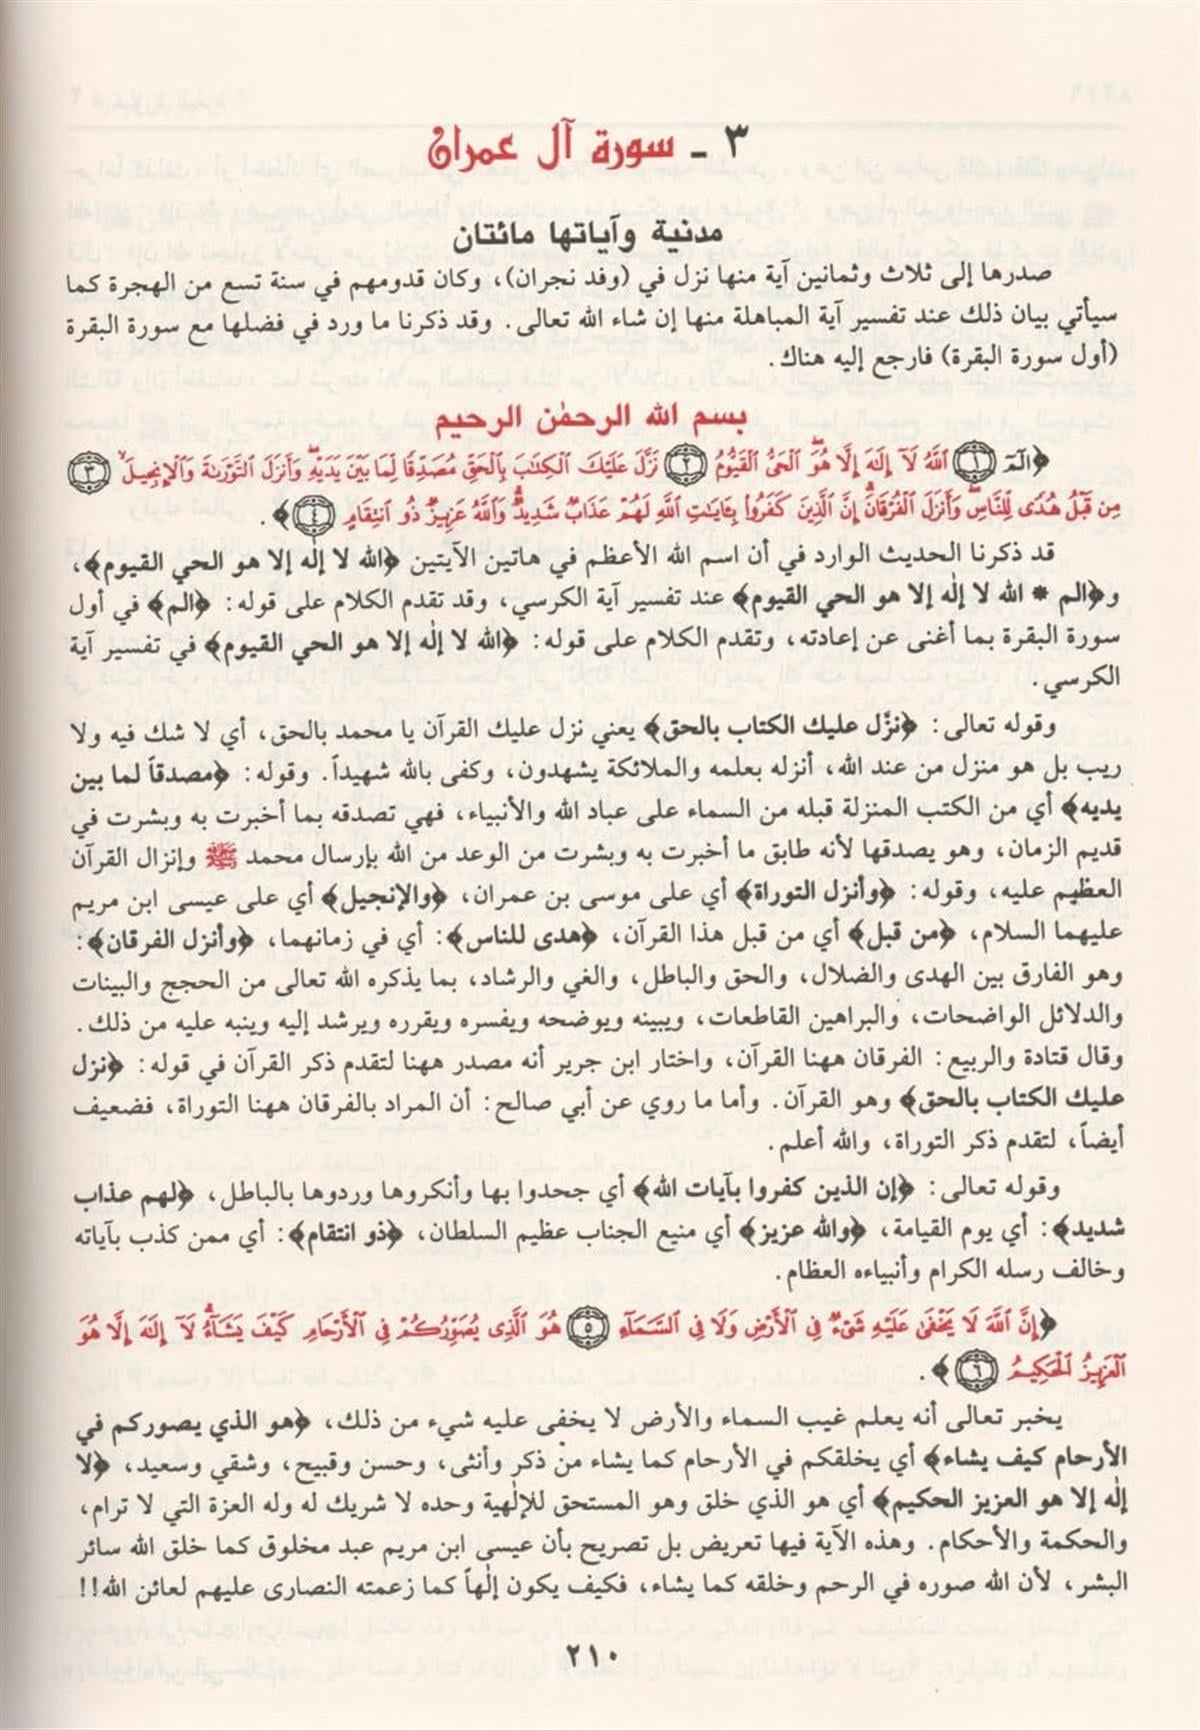 ٣ ـ سورة آل عمران
مدنية وآياتها مائتان
صدرها إلى ثلاث وثمانين آية منها نزل في (وفد نجران)، وكان قدومهم في سنة تسع من الهجرة كما
سيأتي بيان ذلك عند تفسير آية المباهلة منها إن شاء الله تعالى. وقد ذكرنا ما ورد في فضلها مع سورة البقرة
(أول سورة البقرة) فارجع إليه هناك.
بسم الله الرحمٰن الرحيم
﴿الٓمٓ ١ ٱللَّهُ لَآ إِلَٰهَ إِلَّا هُوَ ٱلْحَىُّ ٱلْقَيُّومُ ٢ نَزَّلَ عَلَيْكَ ٱلْكِتَٰبَ بِٱلْحَقِّ مُصَدِّقًا لِّمَا بَيْنَ يَدَيْهِ وَأَنزَلَ ٱلتَّوْرَىٰةَ وَٱلْإِنجِيلَ ٣
مِن قَبْلُ هُدًى لِّلنَّاسِ وَأَنزَلَ ٱلْفُرْقَانَ إِنَّ ٱلَّذِينَ كَفَرُوا۟ بِـَٔايَٰتِ ٱللَّهِ لَهُمْ عَذَابٌ شَدِيدٌ وَٱللَّهُ عَزِيزٌ ذُو ٱنتِقَامٍ ٤﴾.
قد ذكرنا الحديث الوارد في أن اسم الله الأعظم في هاتين الآيتين ﴿الله لا إلٰه إلا هو الحي القيوم﴾،
و﴿الم * الله لا إلٰه إلا هو الحي القيوم﴾ عند تفسير آية الكرسي، وقد تقدم الكلام على قوله: ﴿الم﴾ في أول
سورة البقرة بما أغنى عن إعادته، وتقدم الكلام على قوله: ﴿الله لا إلٰه إلا هو الحي القيوم﴾ في تفسير آية
الكرسي.
وقوله تعالى: ﴿نزّل عليك الكتاب بالحق﴾ يعني نزل عليك القرآن يا محمد بالحق، أي لا شك فيه ولا
ريب بل هو منزل من عند الله، أنزله بعلمه والملائكة يشهدون، وكفى بالله شهيداً. وقوله: ﴿مصدقاً لما بين
يديه﴾ أي من الكتب المنزلة قبله من السماء على عباد الله والأنبياء، فهي تصدقه بما أخبرت به وبشرت في
قديم الزمان، وهو يصدقها لأنه طابق ما أخبرت به وبشرت من الوعد من الله بإرسال محمد ﷺ وإنزال القرآن
العظيم عليه، وقوله: ﴿وأنزل التوراة﴾ أي على موسى بن عمران، ﴿والإنجيل﴾ أي على عيسى ابن مريم
عليهما السلام، ﴿من قبل﴾ أي من قبل هذا القرآن، ﴿هدى للناس﴾: أي في زمانهما، ﴿وأنزل الفرقان﴾:
وهو الفارق بين الهدى والضلال، والحق والباطل، والغي والرشاد، بما يذكره الله تعالى من الحجج والبينات
والدلائل الواضحات، والبراهين القاطعات، ويبينه ويوضحه ويفسره ويقرره ويرشد إليه وينبه عليه من ذلك.
وقال قتادة والربيع: الفرقان ههنا القرآن، واختار ابن جرير أنه مصدر ههنا لتقدم ذكر القرآن في قوله: ﴿نزل
عليك الكتاب بالحق﴾ وهو القرآن. وأما ما روي عن أبي صالح: أن المراد بالفرقان ههنا التوراة، فضعيف
أيضاً، لتقدم ذكر التوراة، والله أعلم.
وقوله تعالى: ﴿إن الذين كفروا بآيات الله﴾ أي جحدوا بها وأنكروها وردوها بالباطل، ﴿لهم عذاب
شديد﴾: أي يوم القيامة، ﴿والله عزيز﴾ أي منيع الجناب عظيم السلطان، ﴿ذو انتقام﴾: أي ممن كذب بآياته
وخالف رسله الكرام وأنبياءه العظام.
﴿إِنَّ ٱللَّهَ لَا يَخْفَىٰ عَلَيْهِ شَىْءٌ فِى ٱلْأَرْضِ وَلَا فِى ٱلسَّمَآءِ ٥ هُوَ ٱلَّذِى يُصَوِّرُكُمْ فِى ٱلْأَرْحَامِ كَيْفَ يَشَآءُ لَآ إِلَٰهَ إِلَّا هُوَ
ٱلْعَزِيزُ ٱلْحَكِيمُ ٦﴾.
يخبر تعالى أنه يعلم غيب السماء والأرض لا يخفى عليه شيء من ذلك، ﴿هو الذي يصوركم في
الأرحام كيف يشاء﴾ أي يخلقكم في الأرحام كما يشاء منْ ذكر وأنثى، وحسن وقبيح، وشقي وسعيد، ﴿لا
إلٰه إلا هو العزيز الحكيم﴾ أي هو الذي خلق وهو المستحق للإلٰهية وحده لا شريك له وله العزة التي لا ترام،
والحكمة والأحكام. وهذه الآية فيها تعريض بل تصريح بأن عيسى ابن مريم عبد مخلوق كما خلق الله سائر
البشر، لأن الله صوره في الرحم وخلقه كما يشاء، فكيف يكون إلٰهاً كما زعمته النصارى عليهم لعائن الله!!
٢١٠